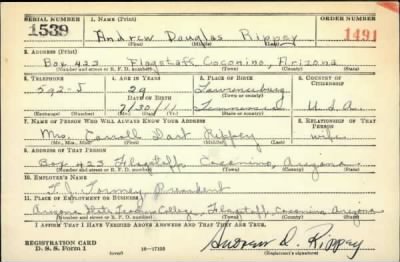 SERIAL NUMBER 1. NAME (Print) ORDER NUMBER
1539 Andrew Douglas Rippey 1491
(First) (Middle) (Last)
2. ADDRESS (Print)
Box 423 Flagstaff, Coconino, Arizona
(Number and street or R. F. D. number) (Town) (County) (State)
3. TELEPHONE 4. AGE IN YEARS 5. PLACE OF BIRTH 6. COUNTRY OF CITIZENSHIP
592-J 29 Lawrenceburg
DATE OF BIRTH (Town or county)
7/30/11 Tennessee U.S.A.
(Exchange) (Number) (Mo.) (Day) (Yr.) (State or country)
7. NAME OF PERSON WHO WILL ALWAYS KNOW YOUR ADDRESS 8. RELATIONSHIP OF THAT PERSON
Mrs. Carroll Dart Rippey wife
(Mr., Mrs., Miss) (First) (Middle) (Last)
9. ADDRESS OF THAT PERSON
Box 423 Flagstaff, Coconino, Arizona
(Number and street or R. F. D. number) (Town) (County) (State)
10. EMPLOYER'S NAME
T. J. Tormey, President
11. PLACE OF EMPLOYMENT OR BUSINESS
Arizona State Teachers College, Flagstaff, Coconino Arizona
(Number and street or R. F. D. number) (Town) (County) (State)
I AFFIRM THAT I HAVE VERIFIED ABOVE ANSWERS AND THAT THEY ARE TRUE.
REGISTRATION CARD
D. S. S. Form 1 (over) Andrew D. Rippey
(Registrant's signature)